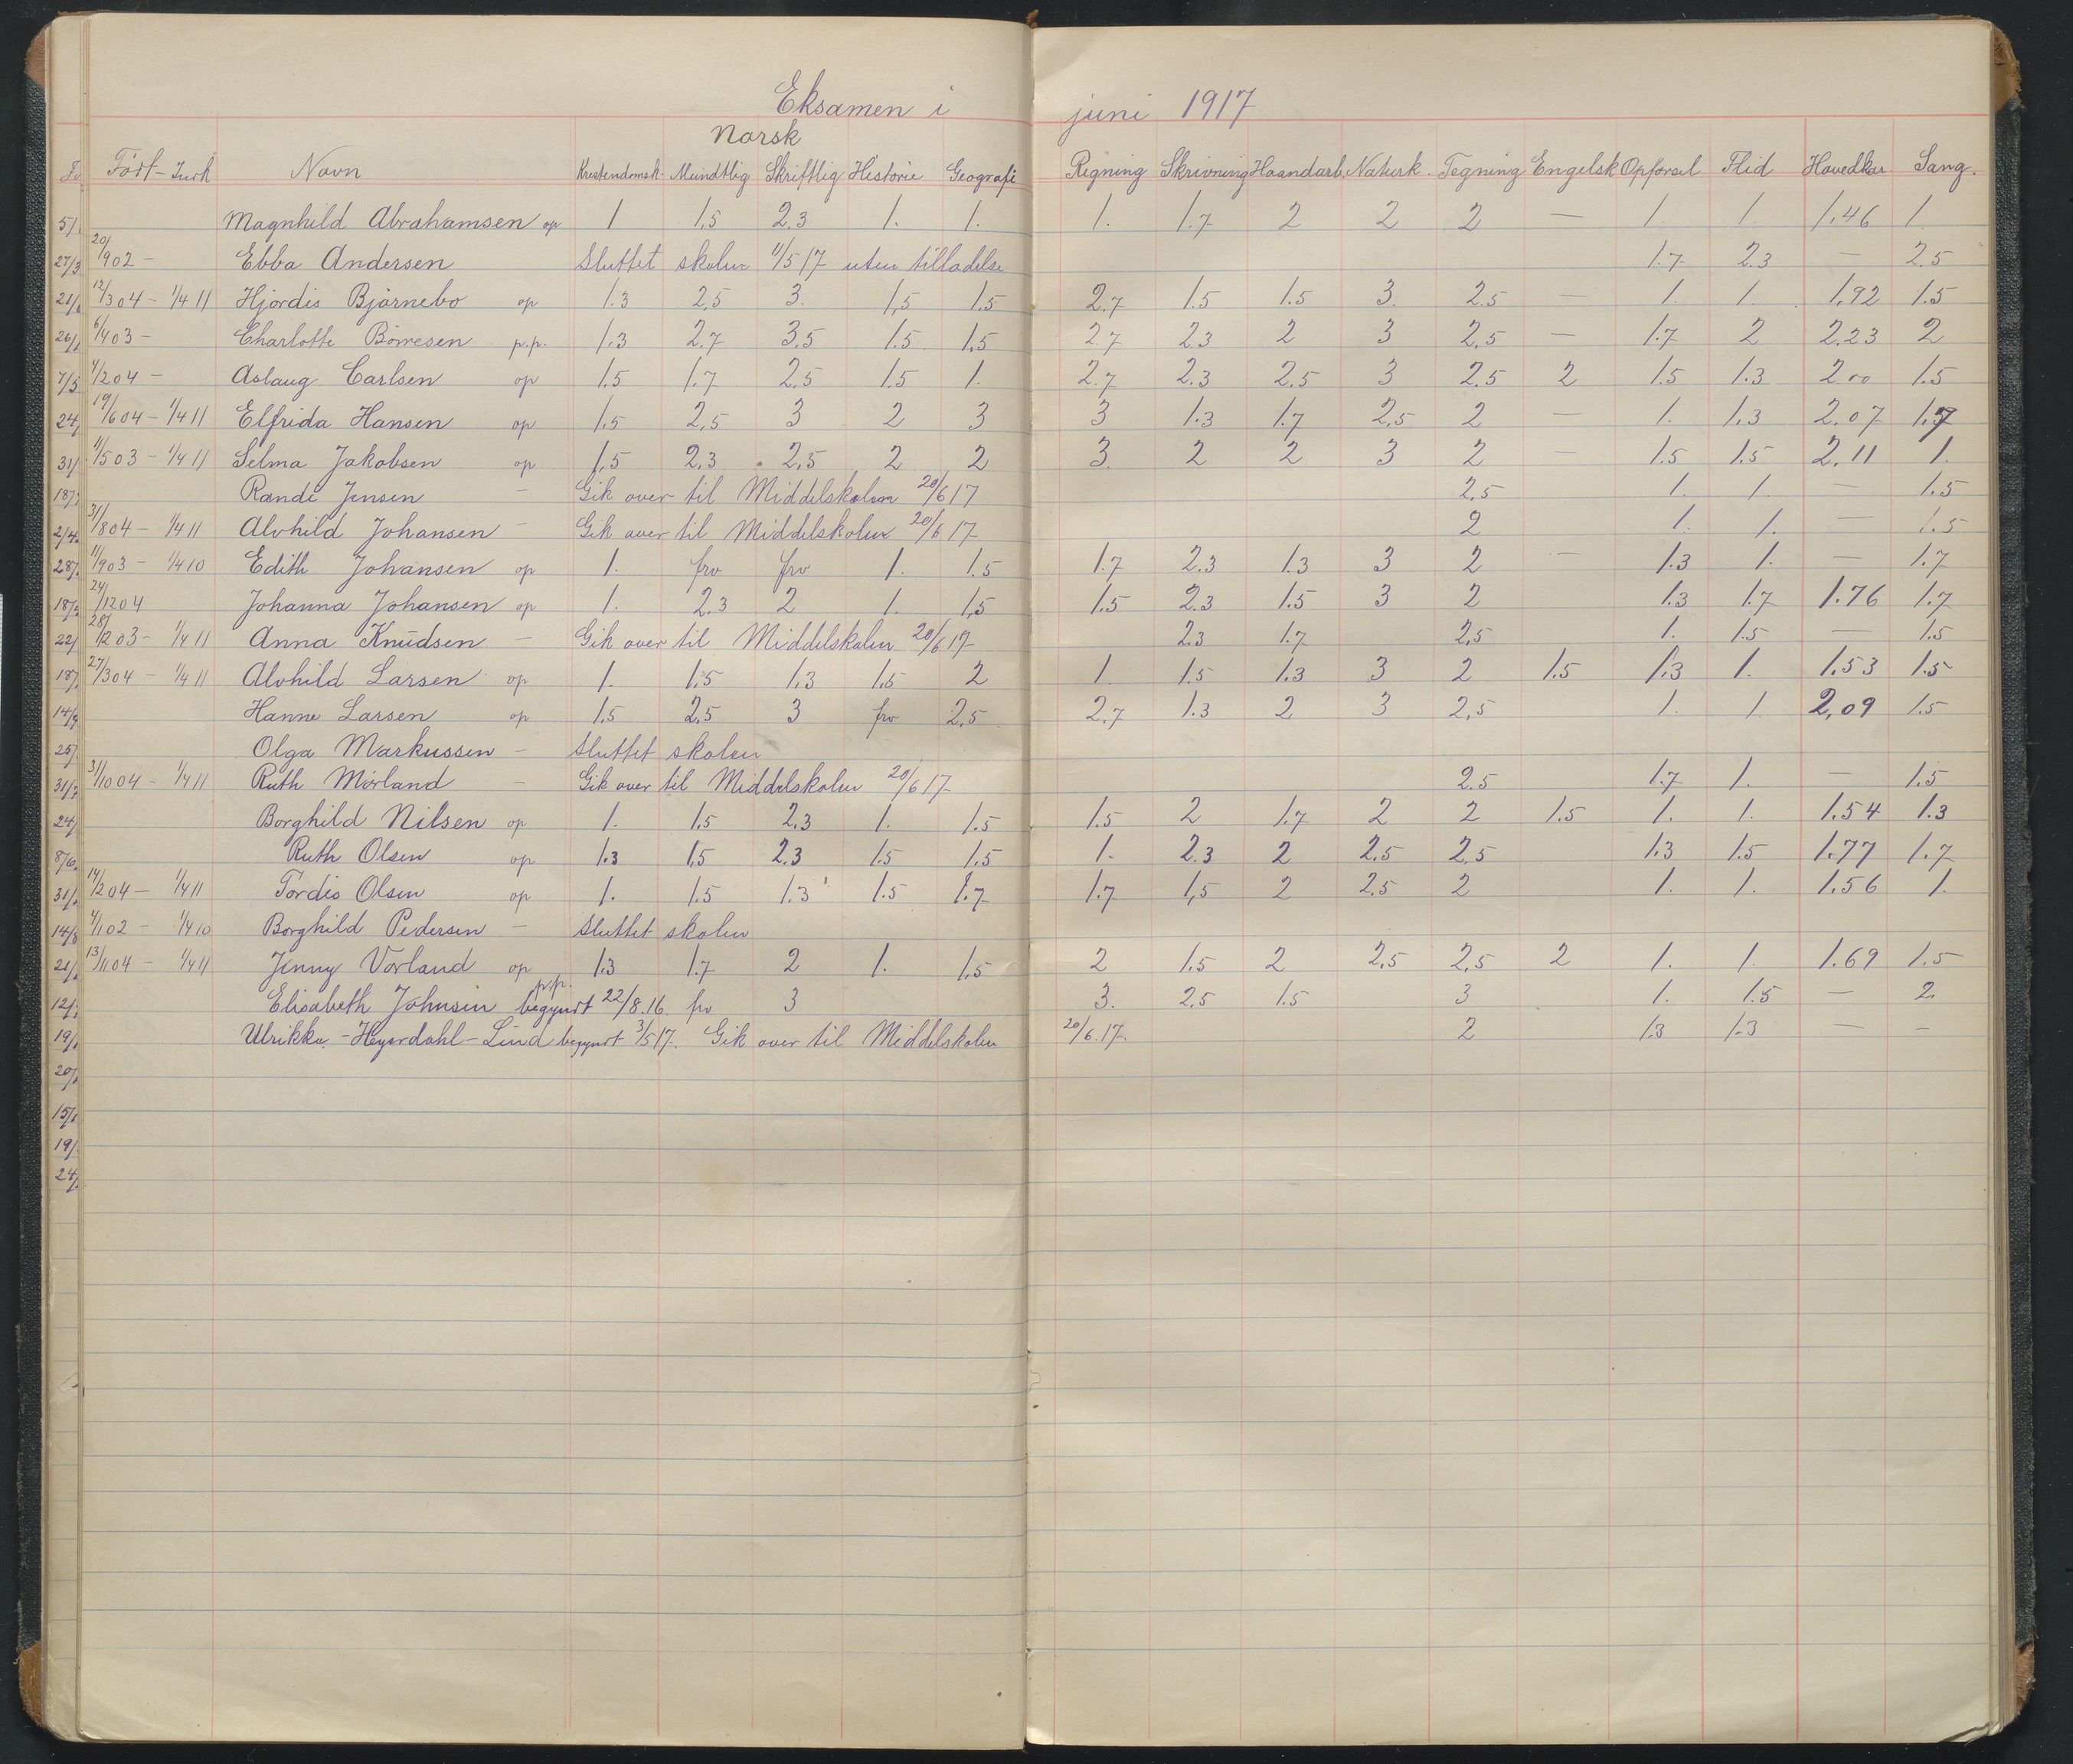 Eksamen i juni 1917
Norsk
Født - Indk Navn Kristendomsk. Mundtlig Skriftlig Historie Geografi Regning Skrivning Haandarb. Naturk. Tegning Engelsk Opførsel Flid Hovedkar. Sang.
5/ Magnhild Abrahamsen op 1 1,5 2.3 1. 1. 1. 1.7 2 2 2 — 1. 1 1,46 1.
27/3 20/902 - Ebba Andersen Sluttet skolen 11/5 17 uten tilladelse 1.7 2.3 — 2.5
21/ 12/304 - 1/4 11 Hjørdis Bjørnebo op 1.3 2,5 3. 1,5 1.5 2.7 1.5 1.5 3. 2.5 — 1. 1. 1,92 1.5
26/ 6/403 - Charlotte Børresen p.p. 1.3 2.7 3.5 1.5 1,5 2.7 2.3 2 3 2,5 — 1.7 2 2,23 2
7/5 4/204 - Aslaug Carlsen op 1,5 1.7 2,5 1.5 1. 2.7 2.3 2,5 3 2.5 2 1.5 1.3 2.00 1.5
24/ 19/604 - 1/4 11 Elfrida Hansen op 1,5 2,5 3 2 3 3 1.3 1.7 2,5 2 — 1. 1,3 2.07 1.7
31/ 11/503 - 1/4 11 Selma Jakobsen op 1,5 2,3 2,5 2 2 3. 2 2 3 2 — 1.5 1.5 2,11 1.
18/ Randi Jensen - Gik over til Middelskolen 20/6 17 2.5 1. 1. — 1.5
2/4 31/804 - 1/4 11 Alvhild Johansen - Gik over til Middelskolen 20/6 17 2 1. 1. — 1.5
28/ 11/903 - 1/4 10 Edith Johansen op 1. frv frv 1. 1.5 1.7 2.3 1.3 3 2 — 1.3 1. — 1.7
18/ 24/1204 Johanna Johansen op 1. 2.3 2 1. 1,5 1.5 2.3 1.5 3 2 1.3 1.7 1.76 1.7
22/ 28/1203 - 1/4 11 Anna Knudsen - Gik over til Middelskolen 20/6 17 2.3 1.7 2,5 1. 1.5 — 1.5
18/ 27/304 - 1/4 11 Alvhild Larsen op 1. 1,5 1,3 1.5 2 1. 1.5 1.3 3 2 1.5 1.3 1. 1.53 1.5
14/9 Hanne Larsen op 1.5 2,5 3 frv 2,5 2,7 1.3 2 3 2,5 1. 1. 2,09 1.5
25/ Olga Markussen - Sluttet skolen
31/ 31/1004 - 1/4 11 Ruth Mørland - Gik over til Middelskolen 20/6 17 2.5 1.7 1. — 1.5
24/ Borghild Nilsen op 1. 1.5 2,3 1. 1.5 1.5 2 1.7 2 2 1.5 1. 1. 1.54 1.3
8/6 Ruth Olsen op 1.3 1,5 2.3 1.5 1.5 1. 2.3 2 2,5 2,5 1.3 1.5 1.77 1.7
31/ 14/204 - 1/4 11 Tordis Olsen op 1. 1.5 1.3 1.5 1.7 1.7 1,5 2 2,5 2 1. 1. 1.56 1.
14/8 4/102 - 1/4 10 Borghild Pedersen - Sluttet skolen
21/ 13/1104 - 1/4 11 Jenny Vorland op 1.3 1.7 2 1. 1,5 2 1.5 2 2,5 2,5 2 1. 1. 1.69 1.5
12/ Elisabeth Johnsen p.p. begyndt 22/8.16 frv 3 3. 2,5 1.5 3 1. 1.5 — 2.
19/ Ulrikke - Heyerdahl - Lind begyndt 3/5 17. Gik over til Middelskolen 20/6.17. 2 1.3 1.3 — —
20/
15/
19/
24/